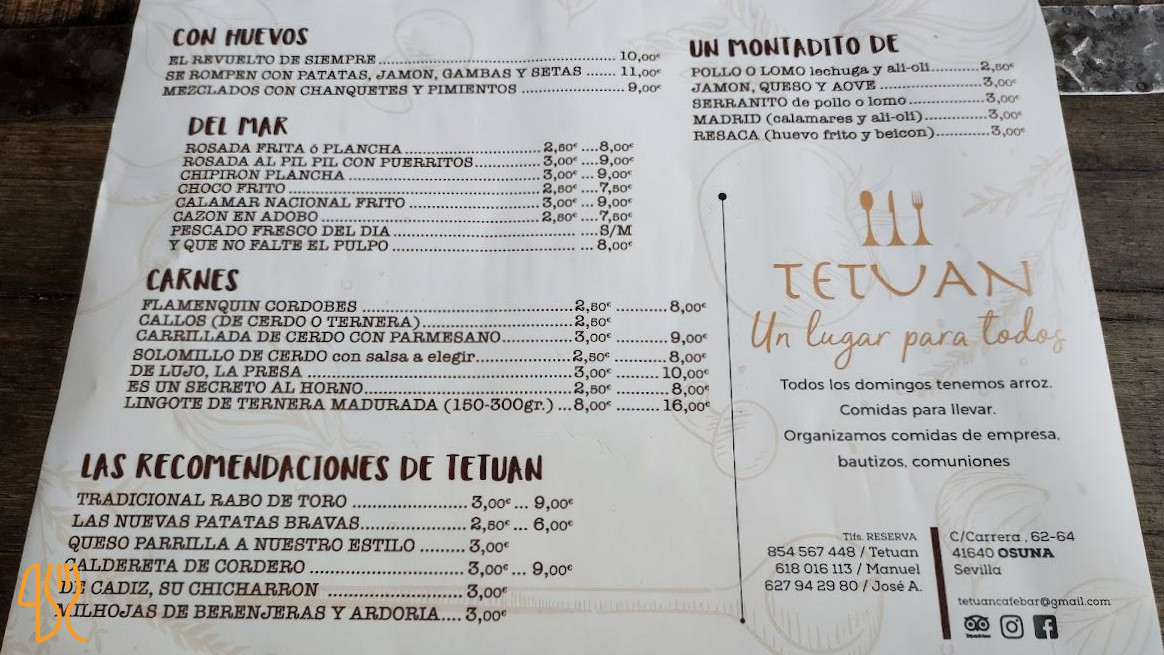 CON HUEVOS
EL REVUELTO DE SIEMPRE ........ 10,00€
SE ROMPEN CON PATATAS, JAMON, GAMBAS Y SETAS ...... 11,00€
MEZCLADOS CON CHANQUETES Y PIMIENTOS ........ 9,00€
DEL MAR
ROSADA FRITA ó PLANCHA ........ 2,50€ ...8,00€
ROSADA AL PIL PIL CON PUERRITOS ........ 3,00€ ...9,00€
CHIPIRON PLANCHA ........ 3,00€ ...9,00€
CHOCO FRITO ........ 2,50€ ...7,50€
CALAMAR NACIONAL FRITO ........ 3,00€ ...9,00€
CAZON EN ADOBO ........ 2,50€ ...7,50€
PESCADO FRESCO DEL DIA ........ ...S/M
Y QUE NO FALTE EL PULPO ........ ...8,00€
CARNES
FLAMENQUIN CORDOBES ........ 2,50€ ......... 8,00€
CALLOS (DE CERDO O TERNERA) ........ 2,50€
CARRILLADA DE CERDO CON PARMESANO ........ 3,00€ ......... 9,00€
SOLOMILLO DE CERDO con salsa a elegir ........ 2,50€ ......... 8,00€
DE LUJO, LA PRESA ........ 3,00€ ......... 10,00€
ES UN SECRETO AL HORNO ........ 2,50€ ......... 8,00€
LINGOTE DE TERNERA MADURADA (150-300gr.) ...8,00€ ......... 16,00€
LAS RECOMENDACIONES DE TETUAN
TRADICIONAL RABO DE TORO ........ 3,00€ ... 9,00€
LAS NUEVAS PATATAS BRAVAS ........ 2,50€ ... 6,00€
QUESO PARRILLA A NUESTRO ESTILO ........ 3,00€
CALDERETA DE CORDERO ........ 3,00€ ... 9,00€
DE CADIZ, SU CHICHARRON ........ 3,00€
MILHOJAS DE BERENJERAS Y ARDORIA.... 3,00€
UN MONTADITO DE
POLLO O LOMO lechuga y ali-oli ........ 2,50€
JAMON, QUESO Y AOVE ........ 3,00€
SERRANITO de pollo o lomo ........ 3,00€
MADRID (calamares y ali-oli) ........ 3,00€
RESACA (huevo frito y beicon) ........ 3,00€
TETUAN
Un lugar para todos
Todos los domingos tenemos arroz.
Comidas para llevar.
Organizamos comidas de empresa,
bautizos, comuniones
Tlfs. RESERVA
854 567 448 / Tetuan
618 016 113 / Manuel
627 94 29 80 / José A.
C/Carrera , 62-64
41640 OSUNA
Sevilla
tetuancafebar@gmail.com